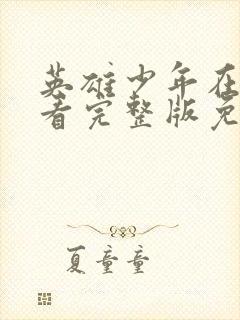 英雄少年在
看完整版免
夏童童